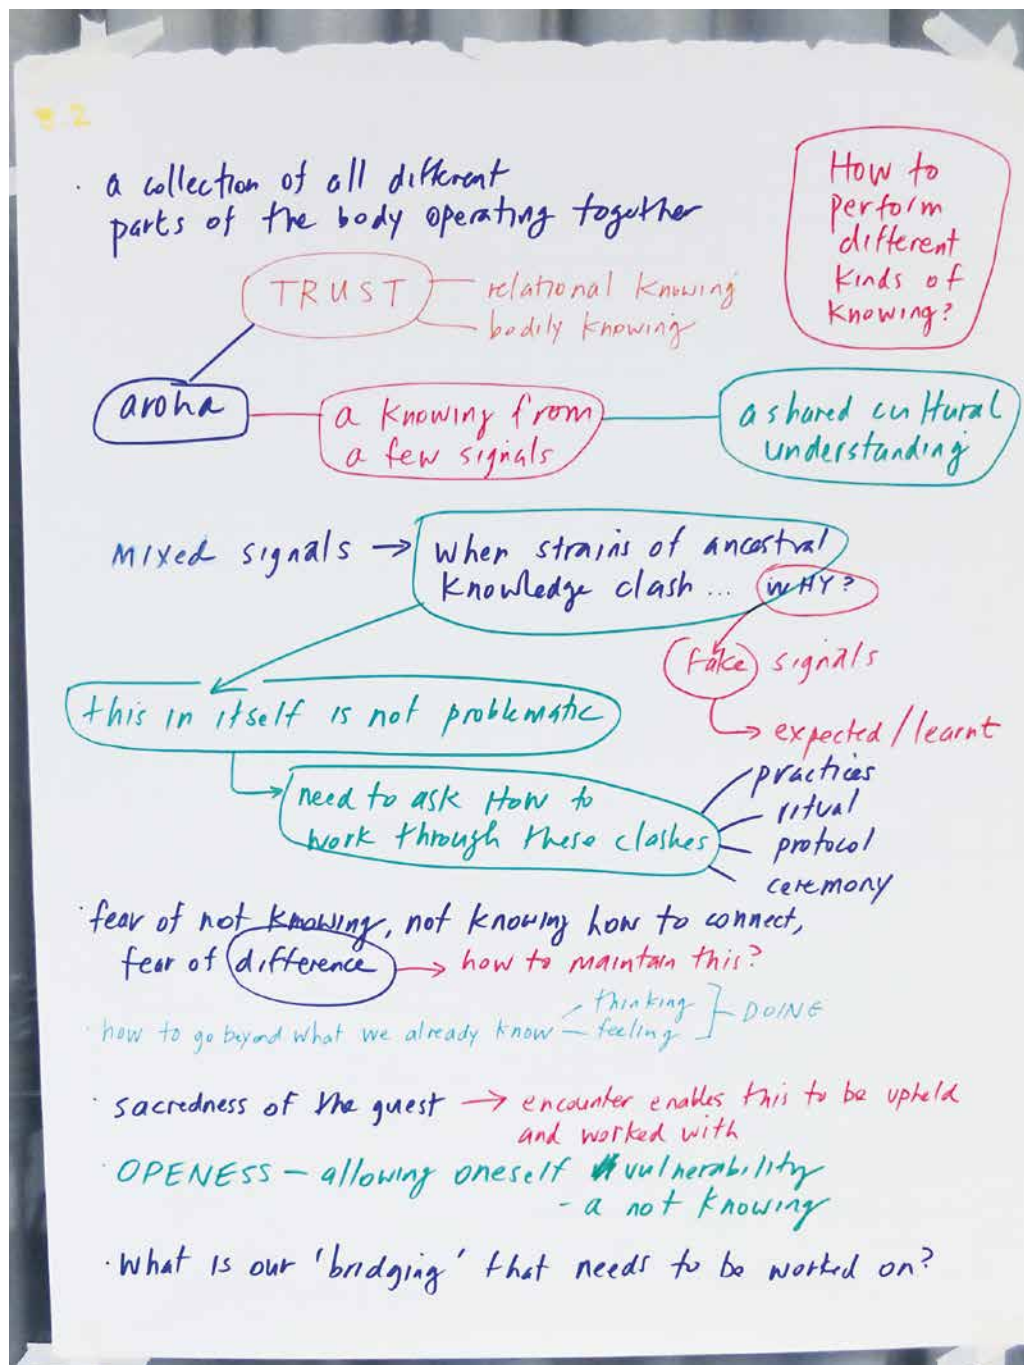 3.2
· a collection of all different
parts of the body operating together
How to
perform
different
kinds of
knowing?
TRUST
relational knowing
bodily knowing
aroha
a knowing from
a few signals
a shared cultural
understanding
MIXed signals →
when strains of ancestral
knowledge clash ... WHY?
fake signals
expected/learnt
this in itself is not problematic
need to ask How to
work through these clashes
practices
ritual
protocol
ceremony
· fear of not knowing, not knowing how to connect,
fear of difference → how to maintain this?
· how to go beyond what we already know
thinking
feeling
DOING
· sacredness of the guest → encounter enables this to be upheld
and worked with
· OPENESS – allowing oneself vulnerability
- a not knowing
· What is our 'bridging' that needs to be worked on?